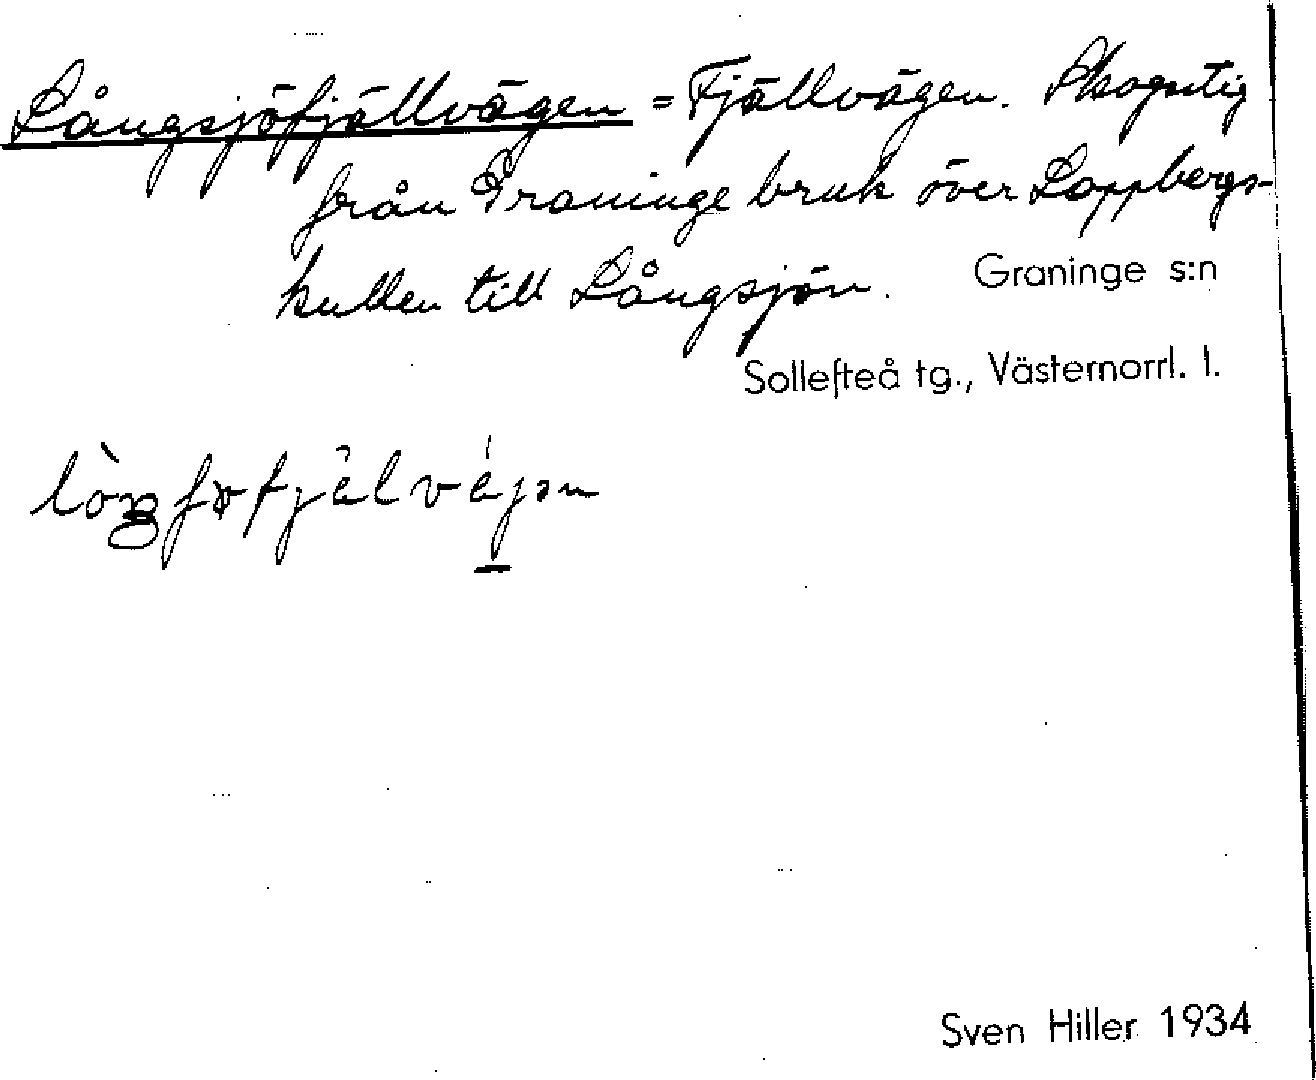 Långsjöfjällvägen = Fjällvägen. Skogstig
från Graninge bruk över Lappbergs-
kullen till Långsjön.
Graninge s:n
Sollefteå tg., Västernorrl. l.
Sven Hiller 1934